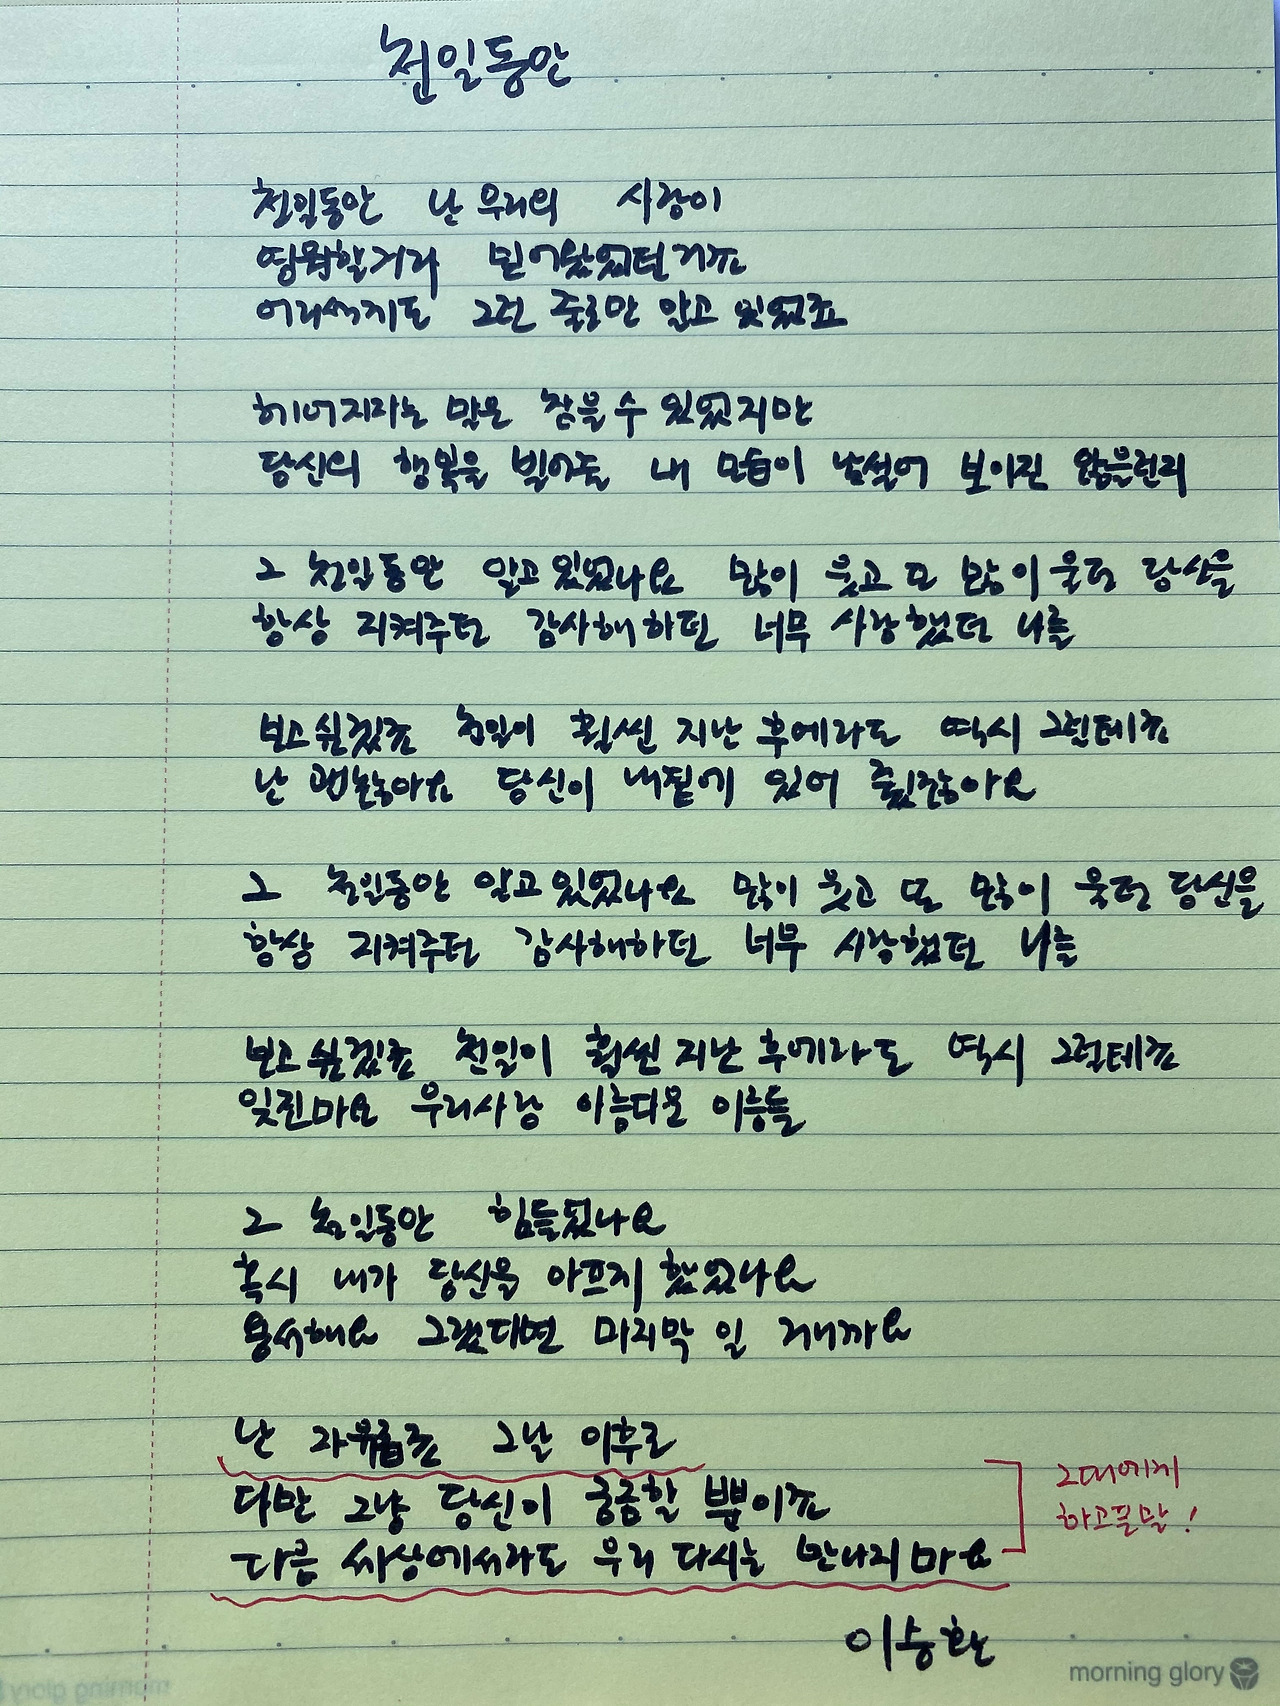 천일동안
천일동안 난 우리의 사랑이
영원할거라 믿어왔었던거죠
어리석게도 그런 줄로만 알고 있었죠
헤어지자는 말은 참을 수 있었지만
당신의 행복을 빌어줄 내 모습이 낯설어 보이진 않을런지
그 천일동안 알고 있었나요 많이 웃고 또 많이 울던 당신을
항상 지켜주던 감사해하던 너무 사랑했던 나를
보고싶겠죠 천일이 훨씬 지난 후에라도 역시 그럴테죠
난 괜찮아요 당신이 내곁에 있어 줬잖아요
그 천일동안 알고 있었나요 많이 웃고 또 많이 울던 당신을
항상 지켜주던 감사해하던 너무 사랑했던 나를
보고싶겠죠 천일이 훨씬 지난 후에라도 역시 그럴테죠
잊진마요 우리사랑 아름다운 이름들
그 천일동안 힘들었나요
혹시 내가 당신을 아프게 했었나요
용서해요 그랬다면 마지막 일 거니까요
난 자유롭죠 그날 이후로
다만 그냥 당신이 궁금할 뿐이죠
다음 세상에서라도 우리 다시는 만나지마요
그대에게
하고픈말!
이승환
morning glory